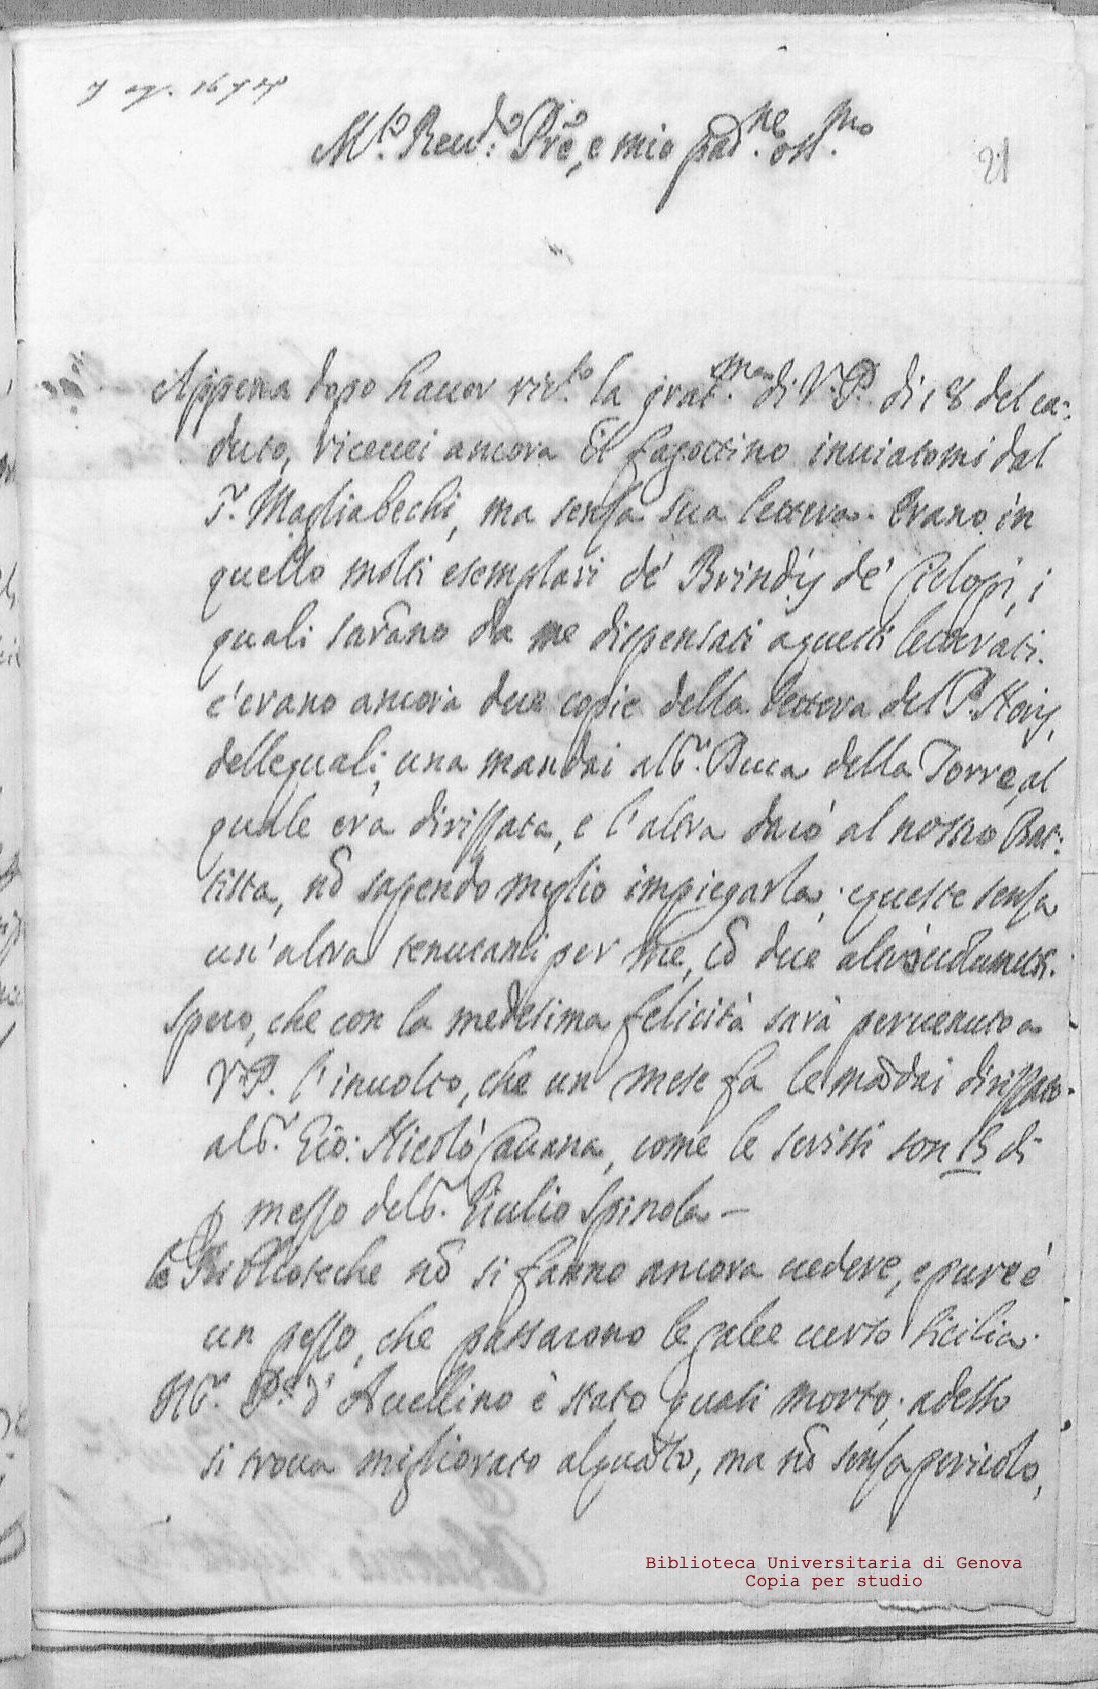 7 ag. 1674
M.to Reu.do P̃re, e mio pad.ne oss.mo
21
Appena dopo hauer ric.to la grat.ma di V.P. di 18 del ca:
duto, riceuei ancora il fagottino inuiatomi dal
S.r Magliabechi, ma senza sua lettera. Erano in
quello molti esemplari de' Brindisi de' Ciclopi, i
quali sarãno da me dispensati a questi letterati.
c'erano ancora due copie della lettera del P. Noris,
delle quali, una mandai al S.r Duca della Torre, al
quale era dirizzata, e l'altra darò al nostro Bat:
tista, nõ sapendo meglio impiegarla; queste senza
un'altra tenutami per me, cõ due altri
Spero, che con la medesima felicità sarà peruenuto a
V.P. l'inuolto, che un mese fa le mãdai dirizzato
al S.r Gio: Nicolò Cauana, come le scrissi son 15 di
p mezzo del S.r Giulio Spinola —
le Biblioteche nõ si fanno ancora uedere, e pure è
un pezzo, che passarono le galee uerso Sicilia.
Il S.r P.e d'Auellino è stato quasi morto; adesso
si troua migliorato alquãto, ma nõ senza pericolo,
Biblioteca Universitaria di Genova
Copia per studio